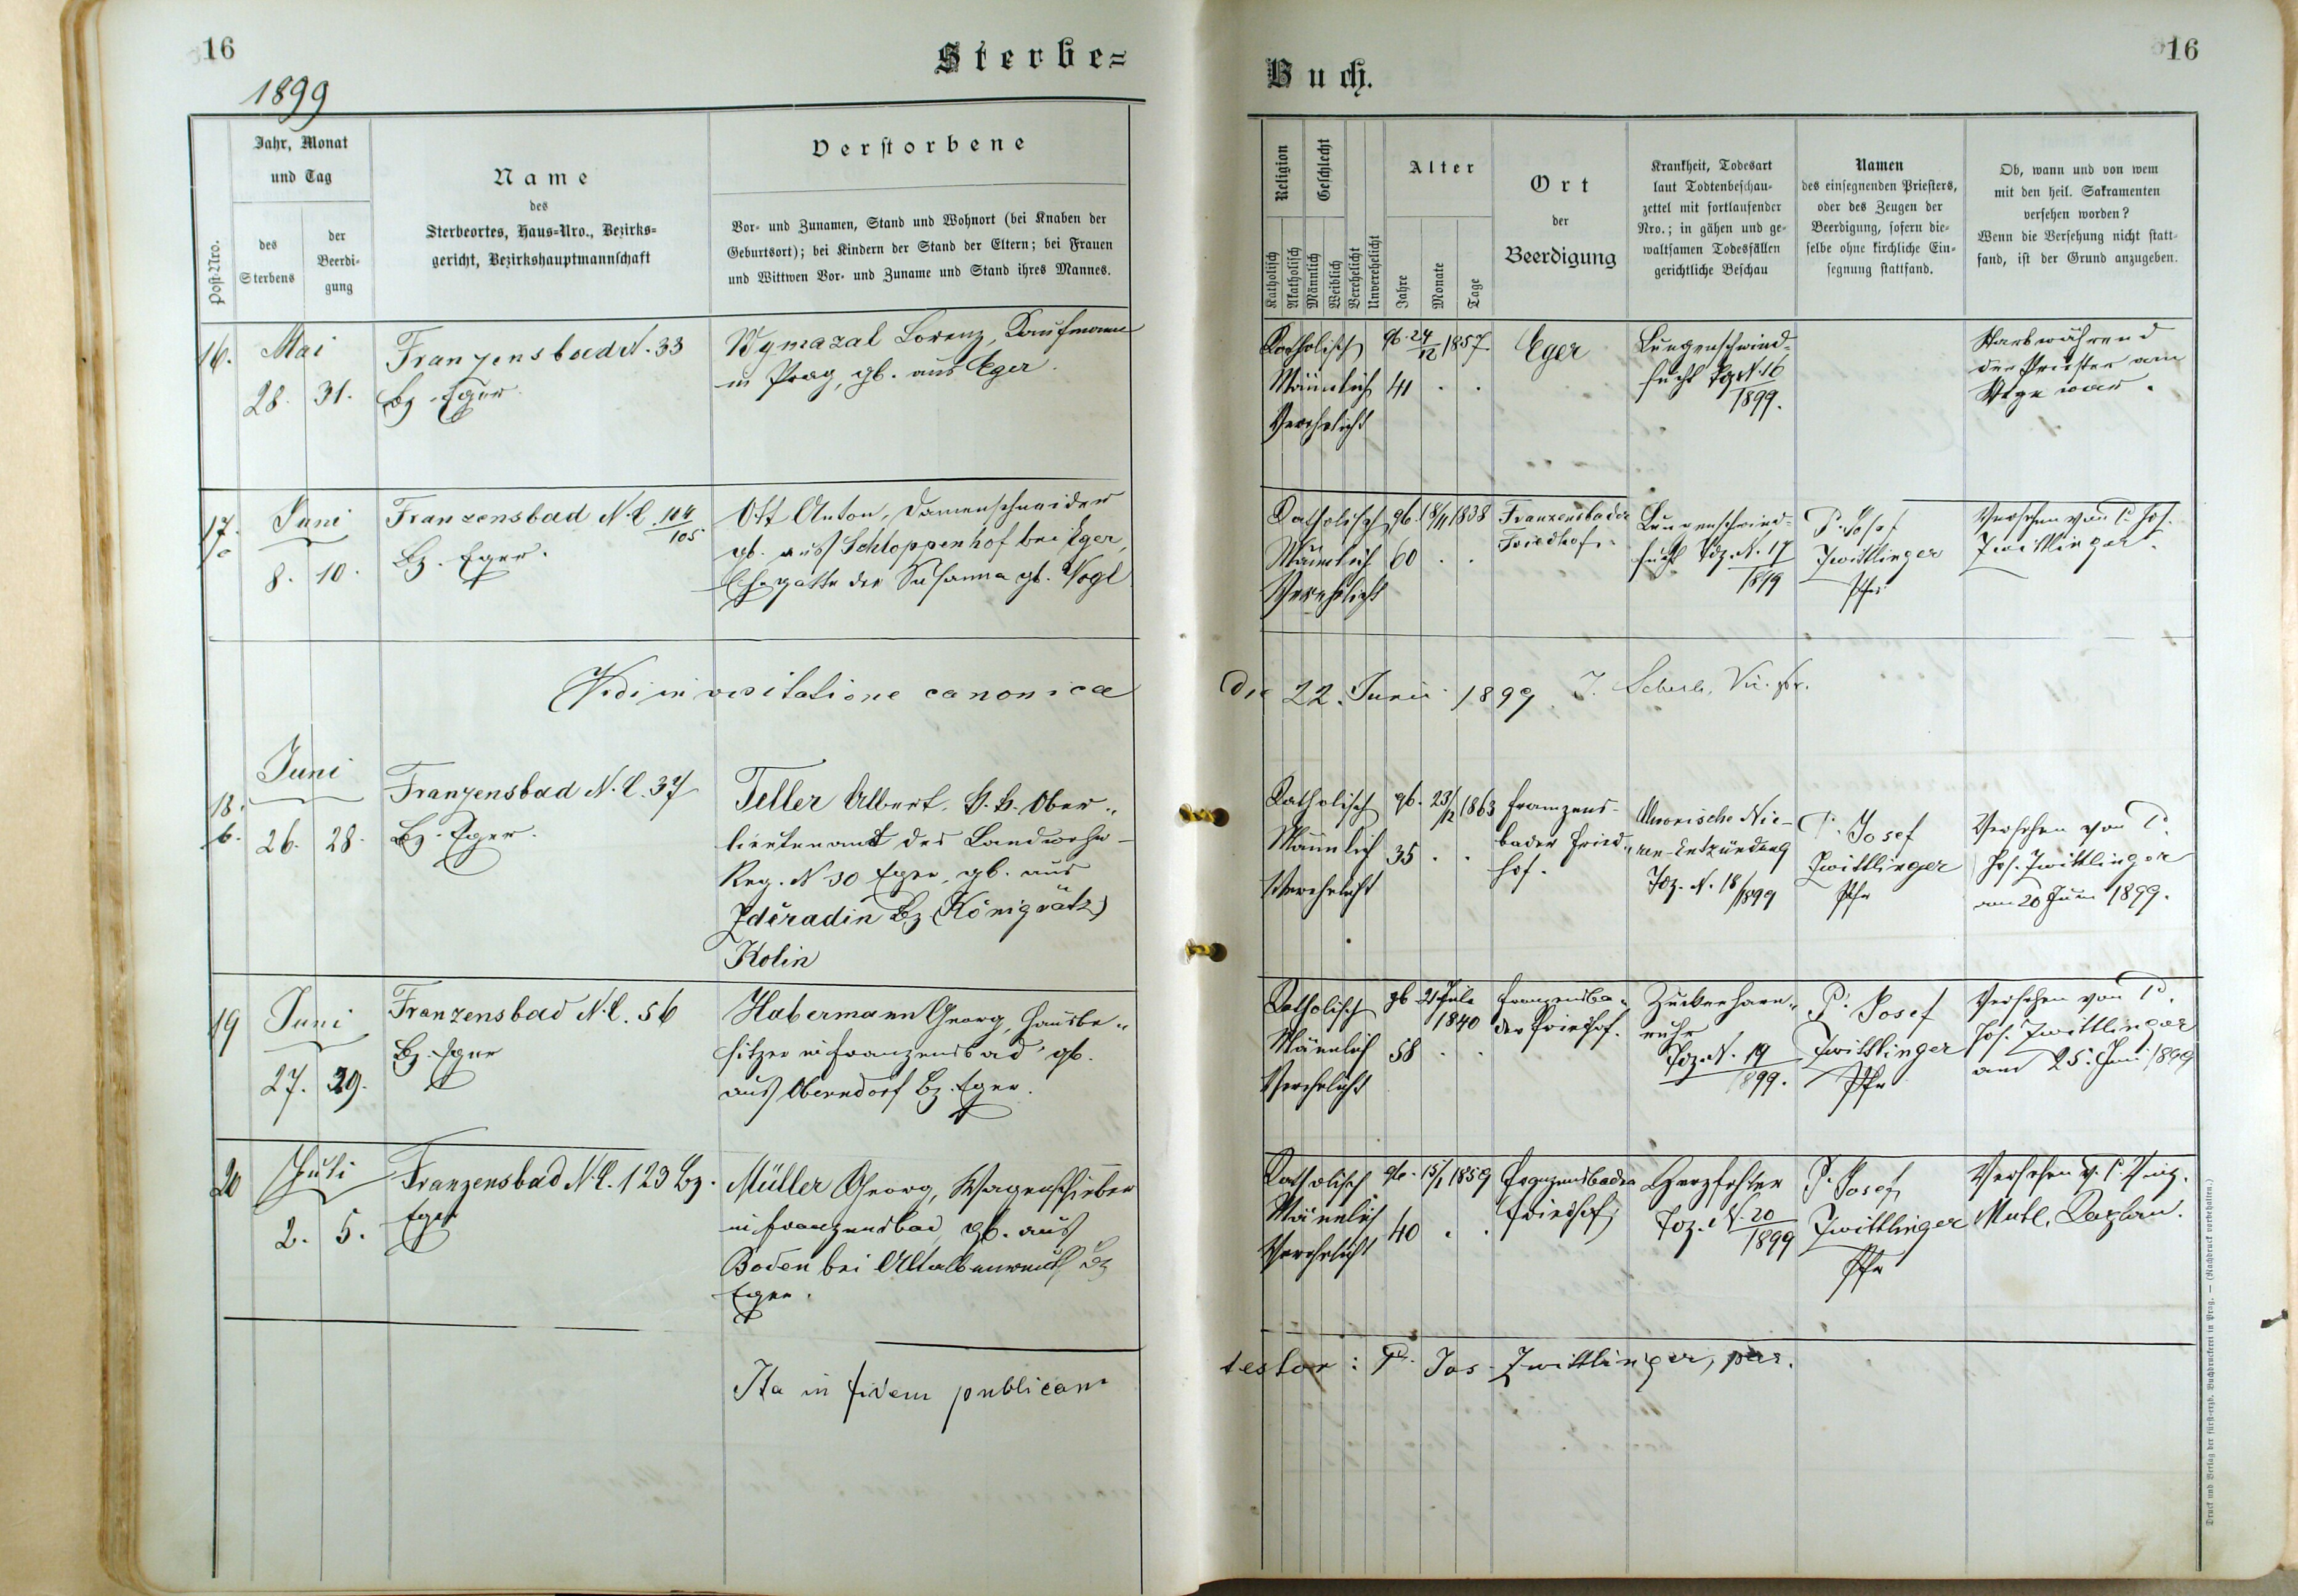 16
Sterbe=
1899
Jahr, Monat
und Tag
Post-Nro.
des
Sterbens
der
Beerdi-
gung
Name
des
Sterbeortes, Haus-Nro., Bezirks-
gericht, Bezirkshauptmannschaft
Verstorbene
Vor- und Zunamen, Stand und Wohnort (bei Knaben der
Geburtsort); bei Kindern der Stand der Eltern; bei Frauen
und Wittwen Vor- und Zuname und Stand ihres Mannes.
16.
Mai
28. 31.
Franzensbad N. 33
Bz. Eger
Wymazal Lorenz, Kaufmann
in Prag, gb. aus Eger.
17.
Juni
8. 10.
Franzensbad N.C. 104/105
Bz. Eger.
Ott Anton, Damenschneider
gb. aus Schloppenhof bei Eger,
Ehegatte der Susanna gb. Vogl
Vidi in visitatione canonica
18.
6.
Juni
26. 28.
Franzensbad N.C. 37
Bz. Eger.
Teller Albert, Ober-
lieutenant des Landwehr-
Reg. N 30 Eger, gb. aus
Zděradin Bz (Königrätz)
Kolin
19
Juni
27. 29.
Franzensbad N.C. 56
Bz. Eger
Habermann Georg, Hausbe-
sitzer in Franzensbad gb.
aus Oberndorf Bz. Eger.
20
Juli
2. 5.
Franzensbad N.C. 123 Bz.
Eger
Müller Georg, Wagenschieber
in Franzensbad, gb. aus
Boden bei Altalbenreuth Bz
Eger.
Ita in fidem publicam
Buch.
16
Religion
Geschlecht
Katholisch
Akatholisch
Männlich
Weiblich
Verehelicht
Unverehelicht
Alter
Jahre
Monate
Tage
Ort
der
Beerdigung
Krankheit, Todesart
laut Todtenbeschau-
zettel mit fortlaufender
Nro.; in gähen und ge-
waltsamen Todesfällen
gerichtliche Beschau
Namen
des einsegnenden Priesters,
oder des Zeugen der
Beerdigung, sofern die-
selbe ohne kirchliche Ein-
segnung stattfand.
Ob, wann und von wem
mit den heil. Sakramenten
versehen worden?
Wenn die Versehung nicht statt-
fand, ist der Grund anzugeben.
Katholisch
Männlich
Verehelicht
gb. 24/12 1857
41 . .
Eger
Lungenschwind-
sucht N. 16
1899.
Starb während
der Priester am
Wege war.
Katholisch
Männlich
Verehelicht
gb. 18/11 1838
60 . .
Franzensbader
Friedhof.
Lungenschwind-
sucht Toz. N. 17
1899
P. Josef
Zwittlinger
Pfr
Versehen von P. Jos.
Zwittlinger.
die 22. Junii 1899.
Katholisch
Männlich
Verehelicht
gb. 23/12 1863
35 . .
Franzens-
bader Fried-
hof.
Chronische Nie-
ren-Entzündung
Toz. N. 18/1899
P. Josef
Zwittlinger
Pfr
Versehen von P.
Jos. Zwittlinger
am 20 Juni 1899.
Katholisch
Männlich
Verehelicht
gb. 21 Juli
1840
58 . .
Franzensba-
der Friedhof.
Zuckerharn-
ruhr
Toz. N. 19
1899.
P. Josef
Zwittlinger
Pfr
Versehen von P.
Jos. Zwittlinger
am 25. Juni 1899
Katholisch
Männlich
Verehelicht
gb. 15/1 1859
40 . .
Franzensbader
Friedhof
Herzfehler
Toz. N. 20
1899
P. Josef
Zwittlinger
Pfr
Versehen v. P.
testor: P. Jos. Zwittlinger, par.
Druck und Verlag der fürst-erzb. Buchdruckerei in Prag. — (Nachdruck vorbehalten.)